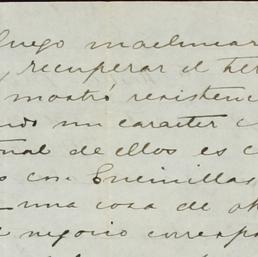 luego maclinear
, recuperar el ter
mostró resistenc
ndo un caracter c
onal de ellos es c
s con Encinillas
una cosa de ok
negocio correspo